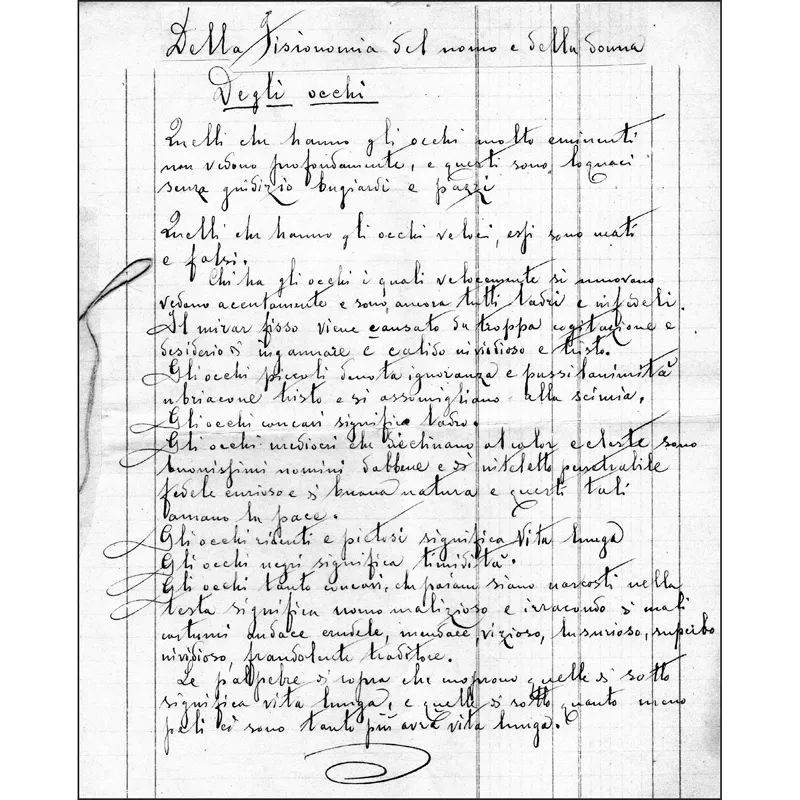 Della Fisionomia del uomo e della donna
Degli occhi
Quelli che hanno gli occhi molto eminenti
non vedono profondamente, e questi sono loquaci
senza giudizio bugiardi e pazzi
Quelli che hanno gli occhi veloci, essi sono
e falsi.
Chi ha gli occhi i quali velocemente si muovono
vedano acentamente e sono ancora tutti ladri e infedeli.
Il mirar fisso viene causato da troppa cogitazione e
desiderio di ingannare è calido invidioso e tristo.
Gli occhi piccoli denota ignoranza e pussilanimità
ubriacone tristo e si assomigliano alla scimia.
Gli occhi concavi significa ladro.
Gli occhi mediocri che declinano al color celeste sono
buonissimi uomini dabbene e di inteletto penetrabile
fedele curioso e di buona natura e questi tali
amano la pace.
Gli occhi ridenti e pietosi significa vita lunga
Gli occhi negri significa timidità.
Gli occhi tanto concavi, che paiam siano nascosti nella
testa significa uomo malizioso e iracondo di mali
costumi audace crudele, mendace, vizioso, lusurioso, superbo
invidioso, fraudolente traditore.
Le palpebre di sopra che moprono quelle di sotto
significa vita lunga, e quelle di sotto quanto meno
peli ci sono tanto più avrà vita lunga.